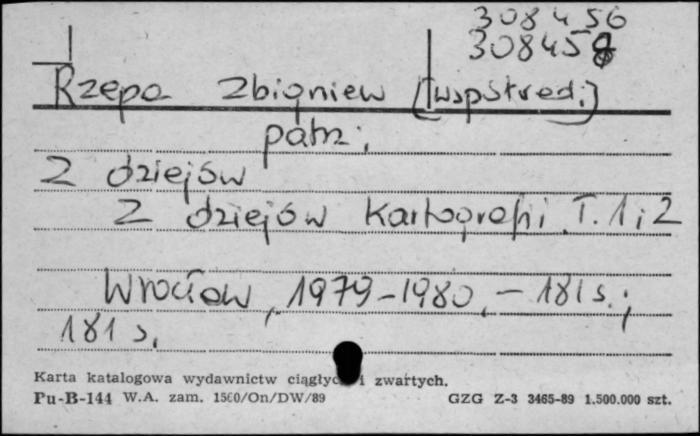 308456
308458
Rzepa Zbigniew [współred.]
patrz:
Z dziejów
Z dziejów Kartografii T. 1 i 2
Wrocław, 1979-1980, - 181 s.;
181 s.
Karta katalogowa wydawnictw ciągłych i zwartych.
Pu-B-144 W.A. zam. 1560/On/DW/89 GZG Z-3 3465-89 1.500.000 szt.